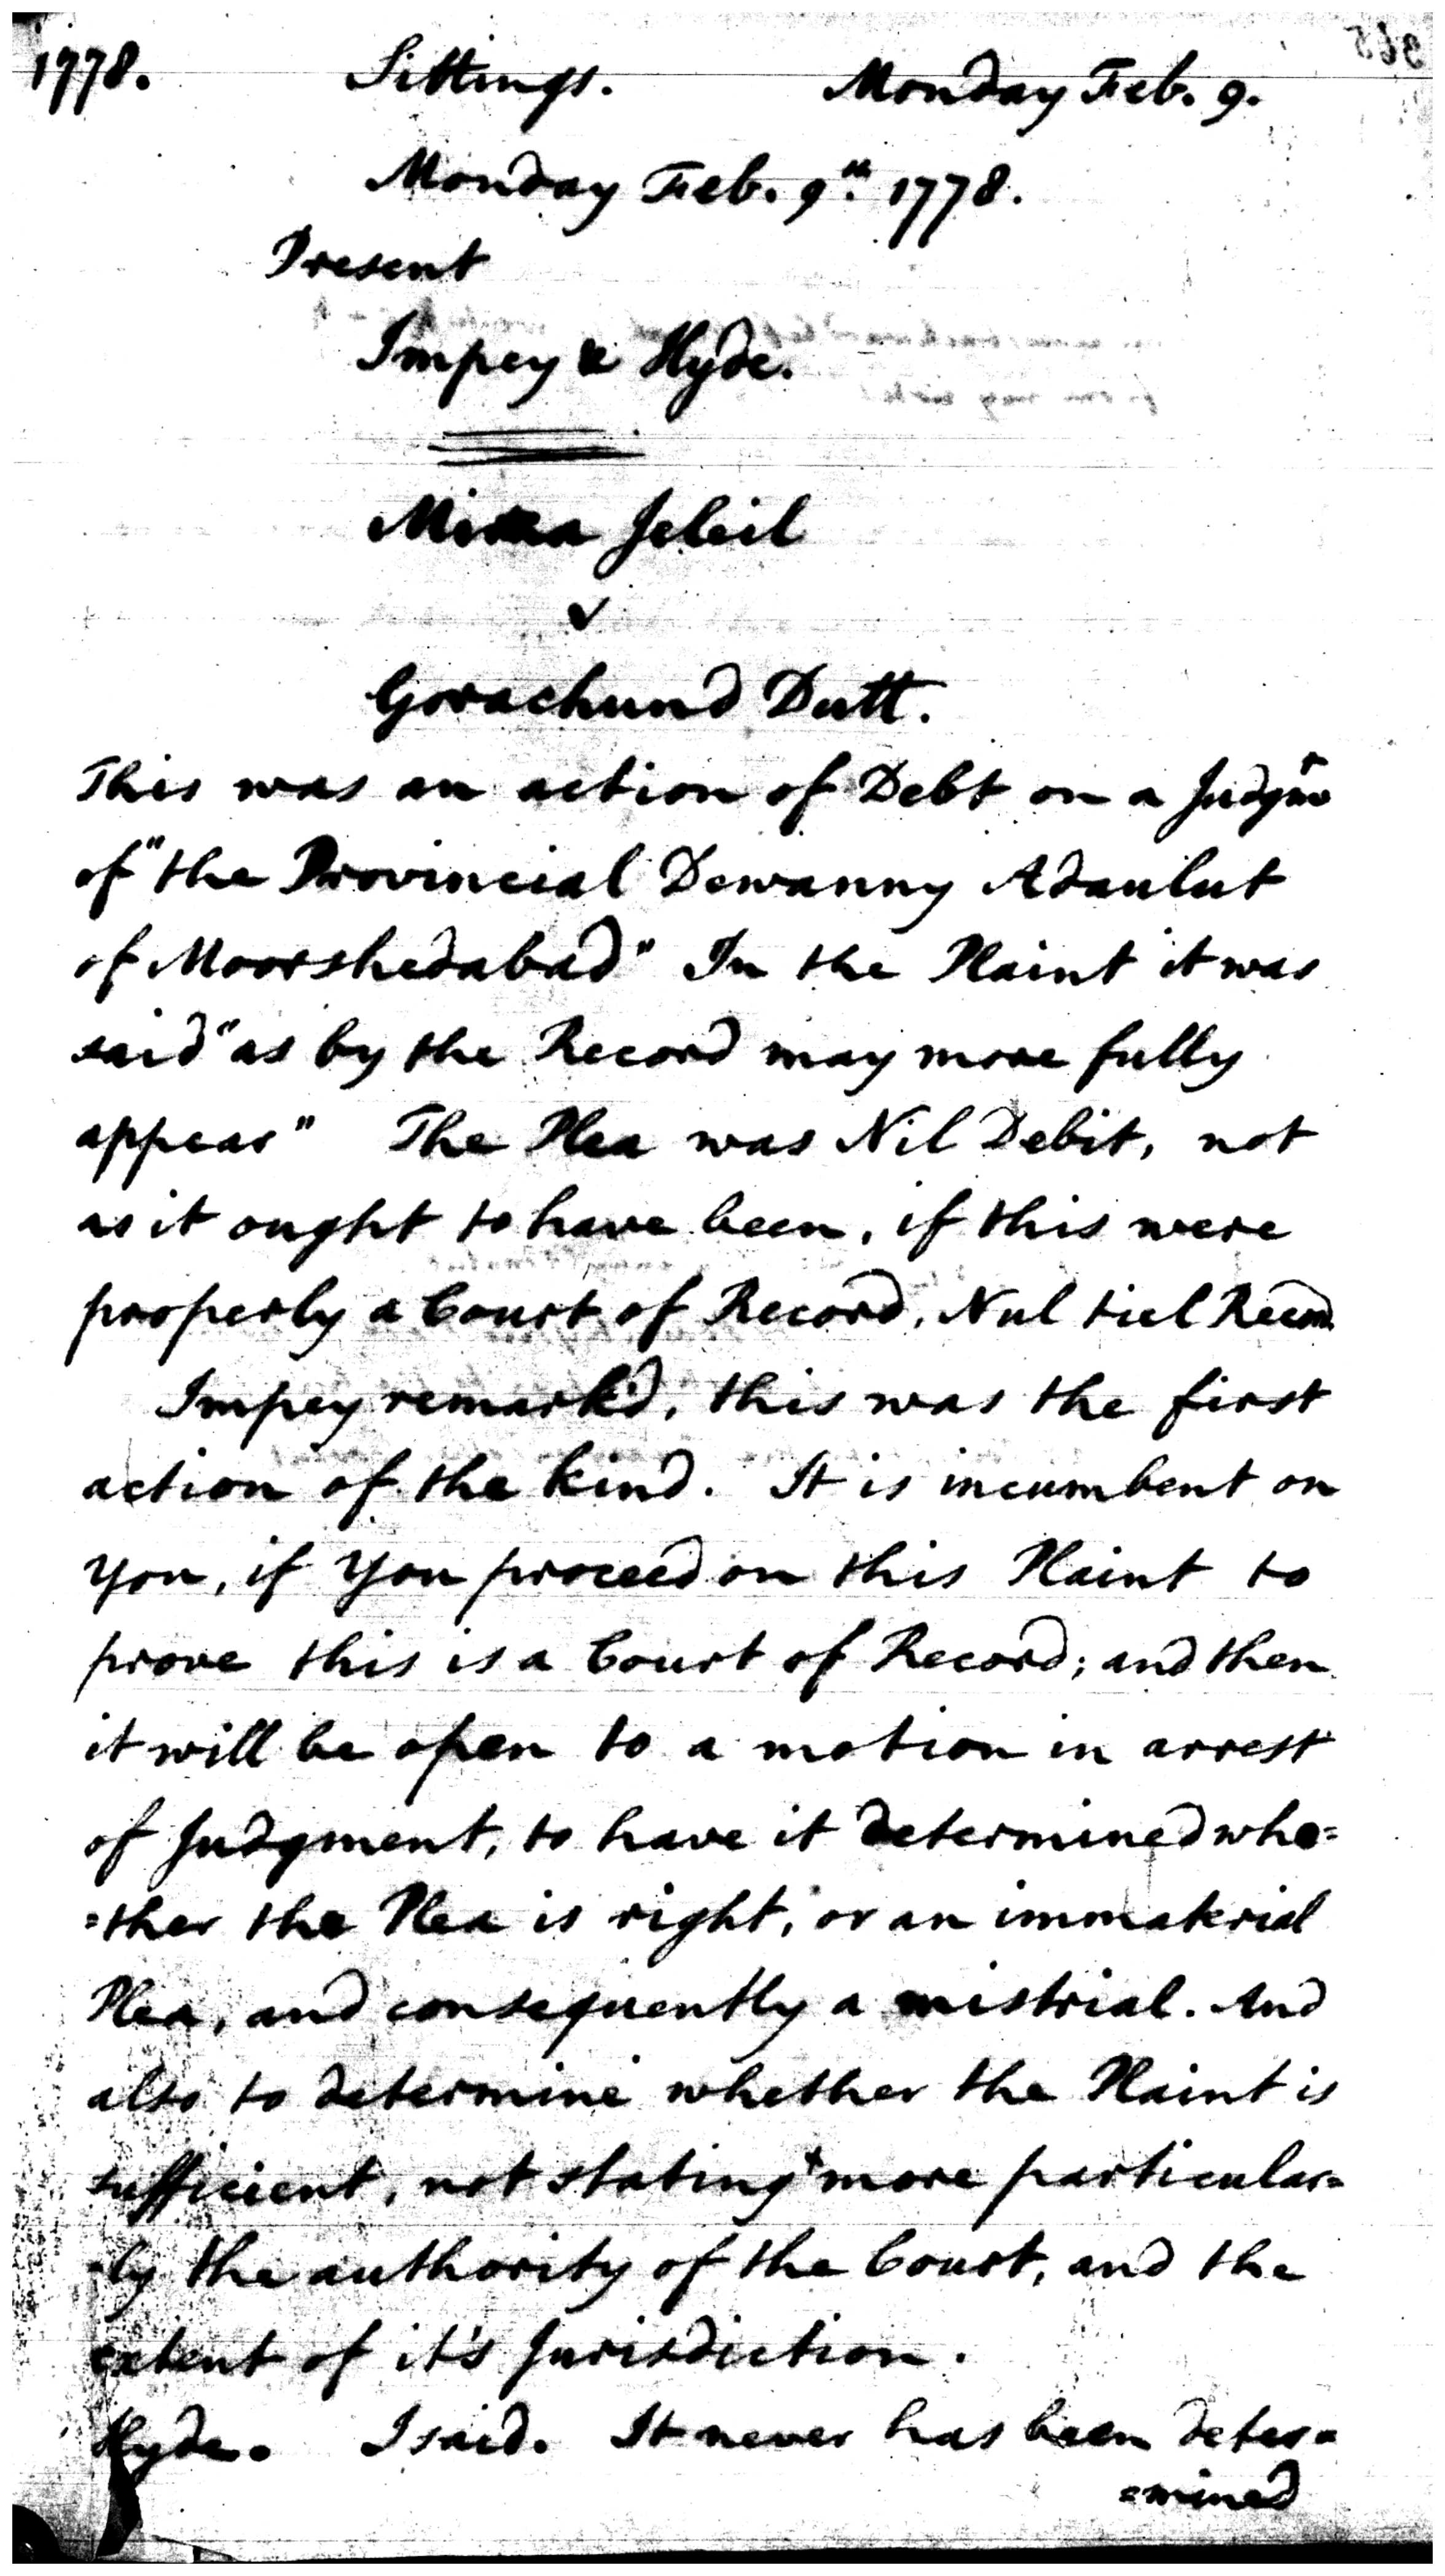 1778. Sittings. Monday Feb. 9.
Monday Feb. 9th. 1778.
Present
Impey & Hyde.
Mirza Jeleil
v
Gorachund Dutt.
This was an action of Debt on a Judgmt
of "the Provincial Dewanny Adaulut
of Moorshedabad" In the Plaint it was
said "as by the Record may more fully
appear" The Plea was Nil Debit, not
as it ought to have been, if this were
properly a Court of Record, Nul tiel Record
Impey remark'd, this was the first
action of the kind. It is incumbent on
you, if you proceed on this Plaint to
prove this is a Court of Record; and then
it will be open to a motion in arrest
of Judgment, to have it determined whe=
=ther the Plea is right, or an immaterial
Plea, and consequently a mistrial. And
also to determine whether the Plaint is
sufficient, not stating more particular=
=ly the authority of the Court, and the
extent of it's Jurisdiction.
Hyde. I said. It never has been deter=
=mined